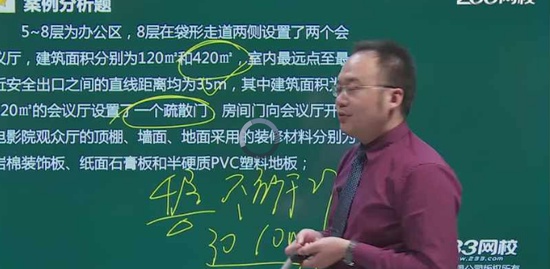 案例分析题
233网校
5~8层为办公区，8层在袋形走道两侧设置了两个会
议厅，建筑面积分别为120㎡和420㎡，室内最远点至最
近安全出口之间的直线距离均为35m，其中建筑面积为
20㎡的会议厅设置了一个疏散门
房间门向会议厅开
电影院观众厅的顶棚、墙面、地面采用的装修材料分别为
岩棉装饰板、纸面石膏板和半硬质PVC塑料地板；
不少于2个
10m
33网校